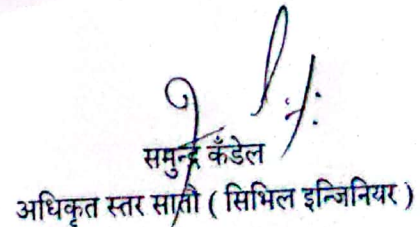 समुन्द्र कँडेल
अधिकृत स्तर सातौ ( सिभिल इन्जिनियर )